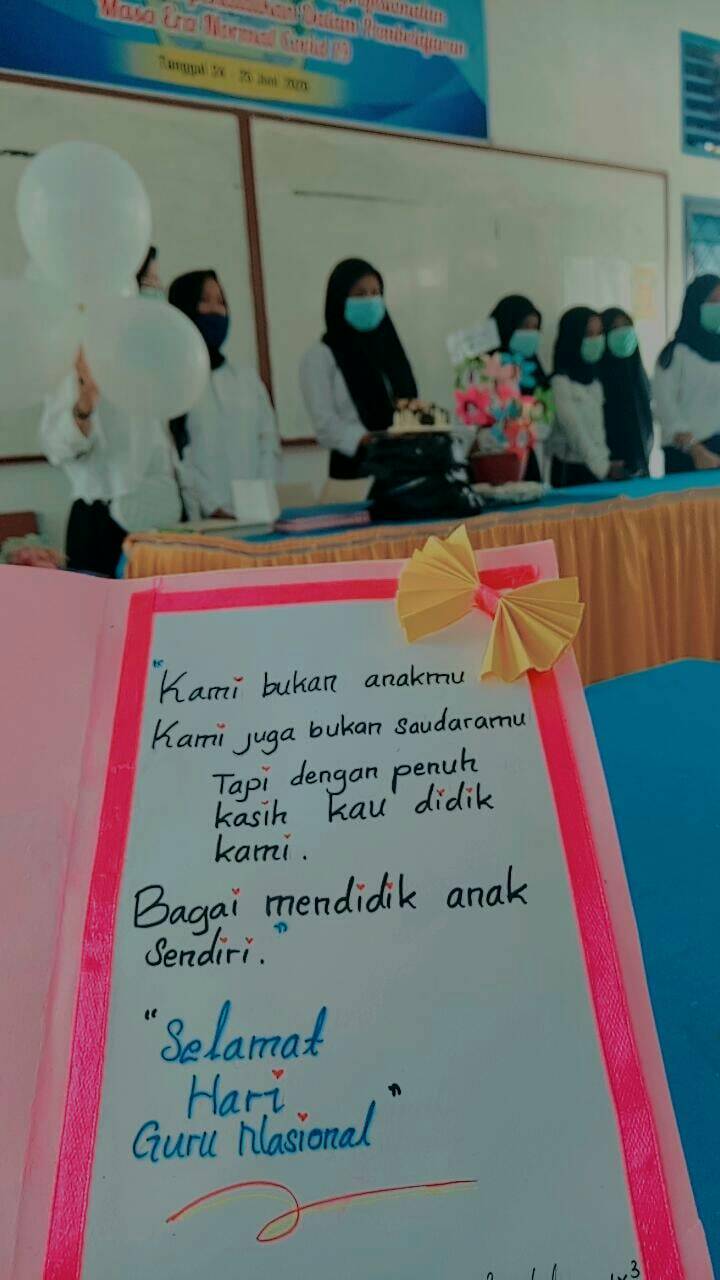 Dalam Pembelajaran
Masa Era Normal Covid 19
Tanggal 24 - 25 Juni 2020
"Kami bukan anakmu
Kami juga bukan saudaramu
Tapi dengan penuh
kasih kau didik
kami.
Bagai mendidik anak
Sendiri."
"Selamat
Hari
Guru Nasional"